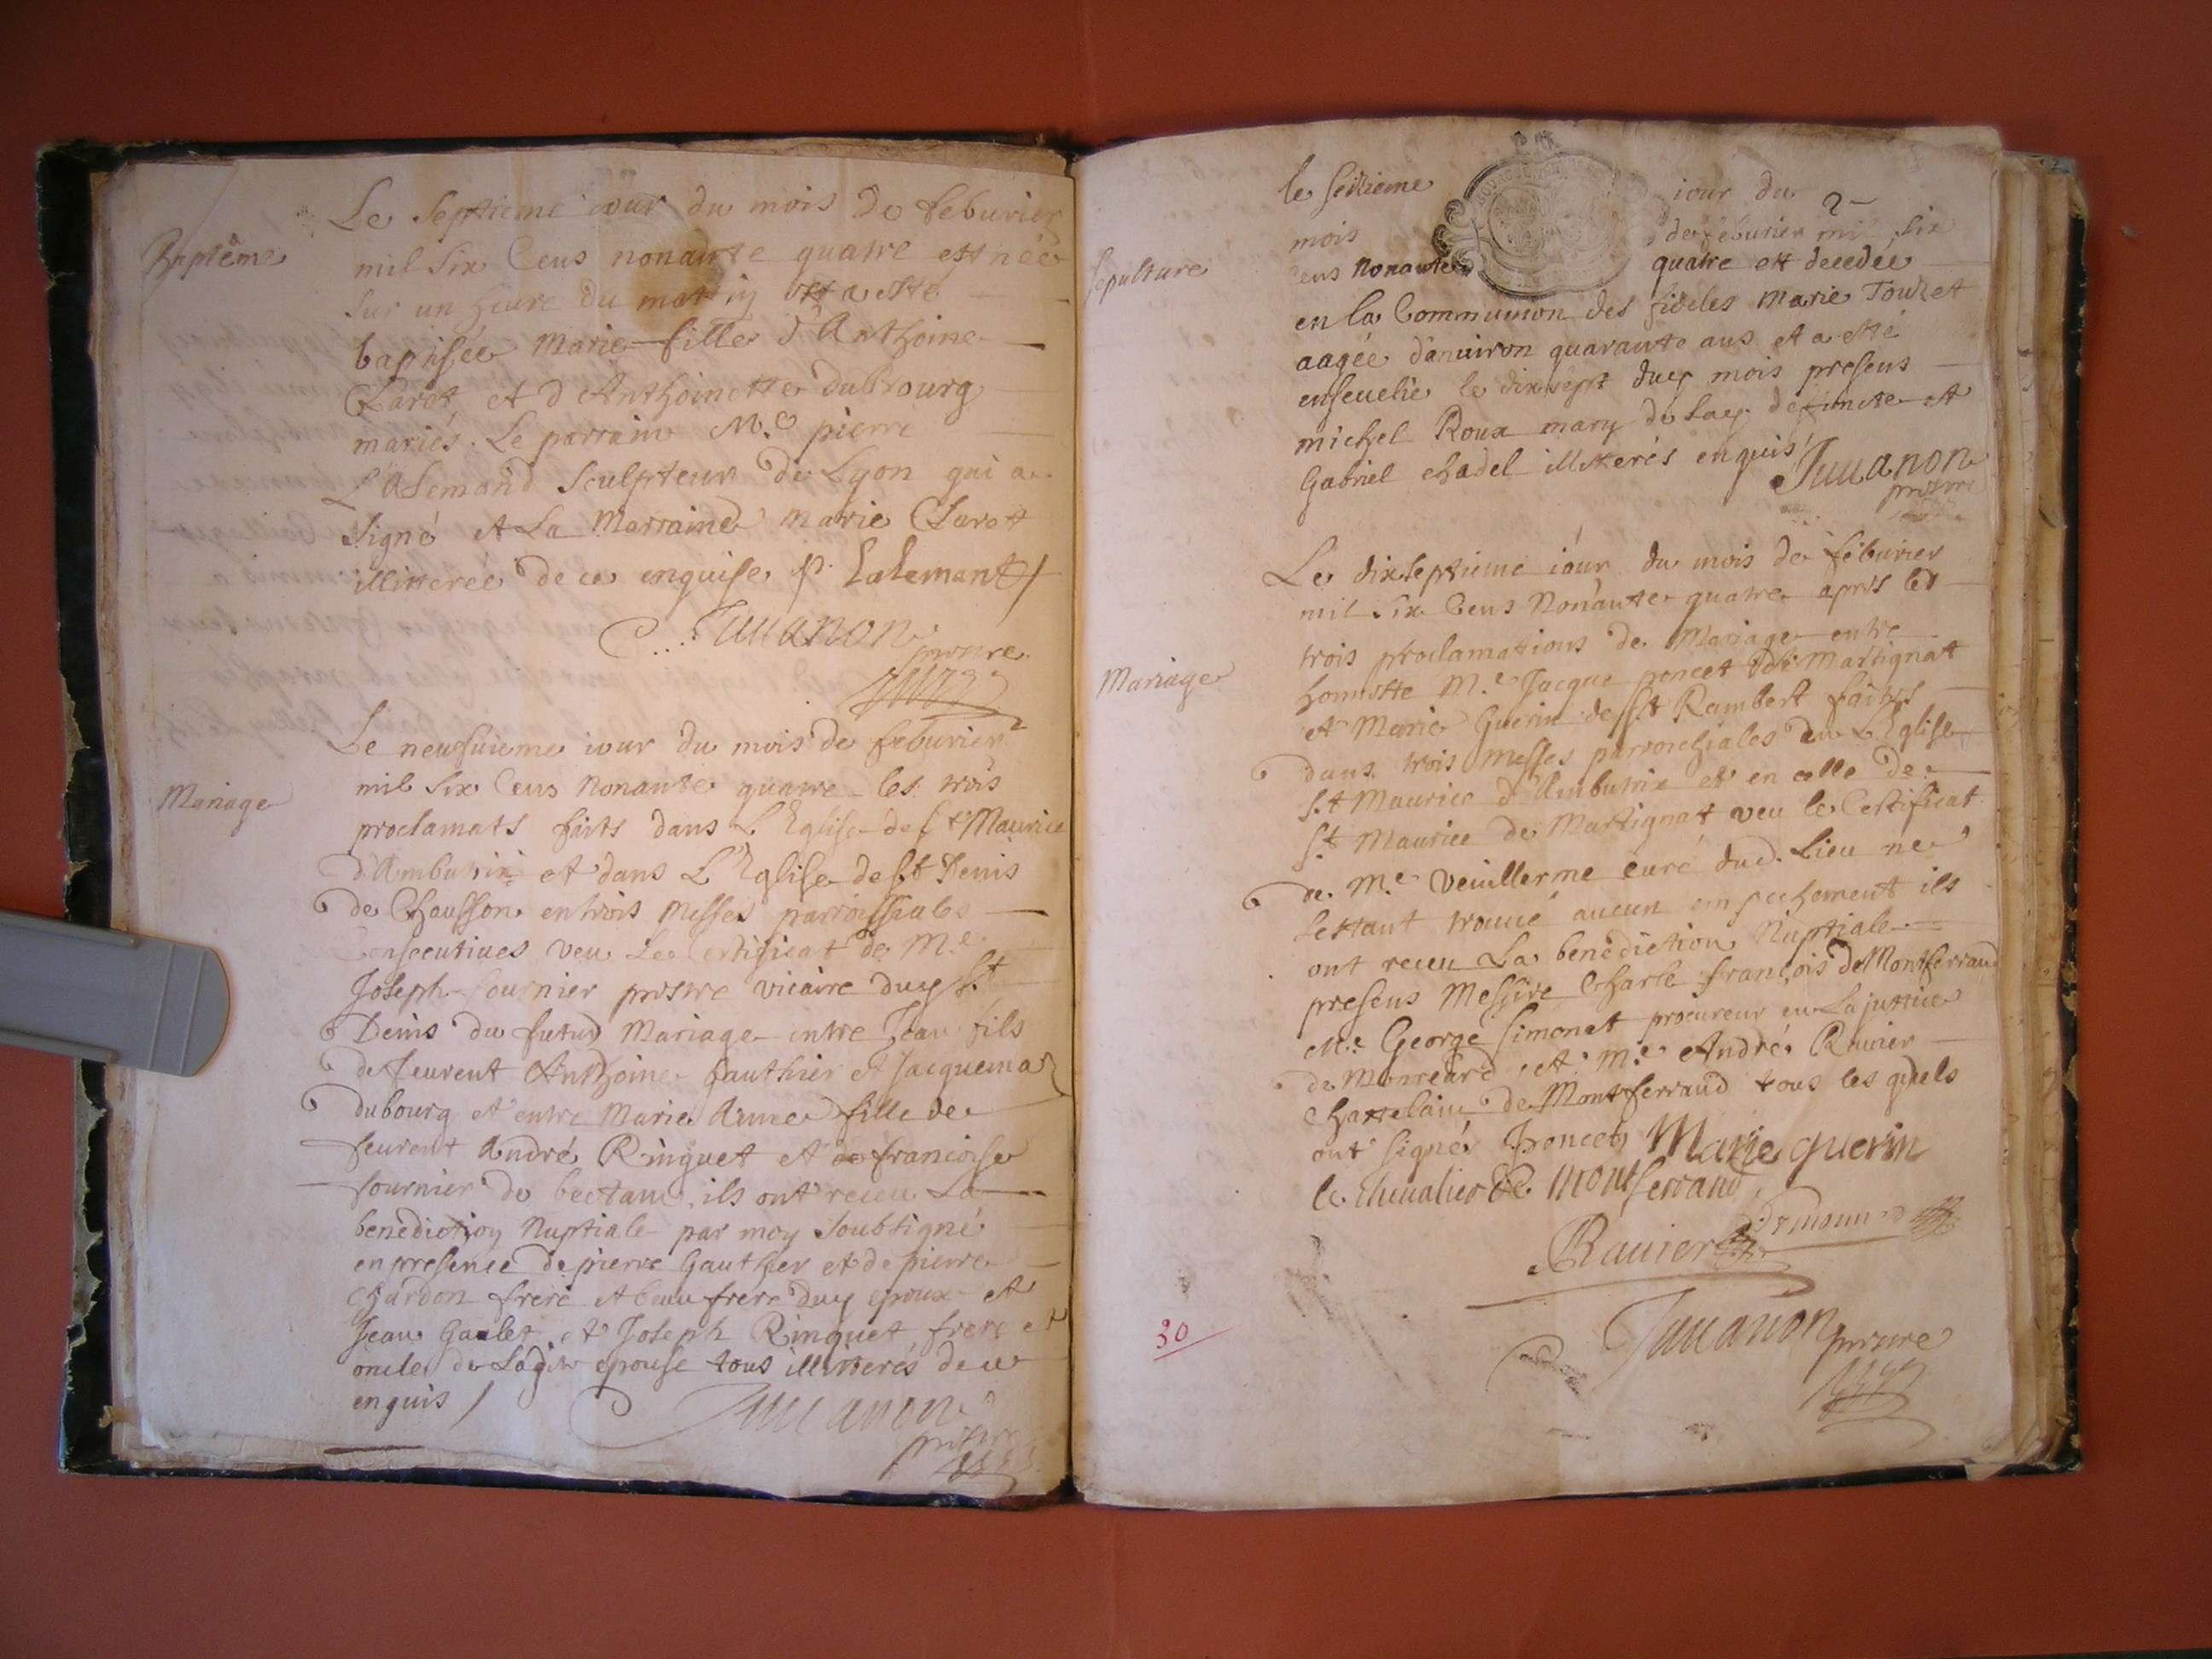 Baptême
Le septieme iour du mois de feburier
mil six Cens nonante quatre est née
sur un heure du matin et a esté
baptisée Marie fille d'Anthoine
Clarot et d Anthoinette dubourg
mariés. Le parrain M.e pierre
L'alemand sculpteur de Lyon qui a
signé et La Marraine marie Clarot
illitterée de ce enquise p. Lalemant
Juuanon prestre
Mariage
Le neufuieme iour du mois de feburier
mil six Cens Nonante quatre les trois
proclamats faits dans L'Eglise de st Maurice
d'Ambutrix et dans L'Eglise de st Denis
de Chausson en trois Messes parroissiales
Consecutiues veu Le Certificat de M.e
Joseph fournier prestre vicaire duy st
Denis du futur Mariage entre Jean fils
de feurent Anthoine gauthier et Jacquema
dubourg et entre Marie Anne fille de
feurent André Ringuet et de francoise
fournier de bettant, ils ont receu La
benediction Nuptiale par moy soubsigné
en presence de pierre Gauthier et de pierre
Chardon frere et beau frere duy epoux et
Jean et Joseph Ringuet frere et
oncle de Ladite epouse tous illitterés de ce
enquis
Juuanon
prestre
2
Sepulture
le seizieme iour du
mois de feburier mil six
Cens Nonante quatre est decedée
en la Communion des fideles Marie Touzet
aagée d'enuiron quarante ans et a esté
enseuelie le dix sept duy mois presens
michel Roux mary de Lay defuncte et
Gabriel chadel illitterés enquis
Juuanon
prestre
Mariage
Le dixseptieme iour du mois de feburier
mil six Cens Nonante quatre apres les
trois proclamations de Mariage entre
honneste M.e Jacque poncet de Martignat
et Marie Guerin de St Rambert faites
dans trois Messes parrochiales de L'Eglise
st Maurice d'Ambutrix et en celle de
st Maurice de Martignat veu le Certificat
de M.e veuillerme curé dud. Lieu ne
sestant trouué aucun empechement ils
ont receu La benediction Nuptiale
presens Messire Charle françois de Montferrand
M.e George simonet procureur en La justice
de , et M.e André Rauier
Chattelain de Montferrand tous les quels
ont signés Poncet Marie guerin
le cheualier de montferrand
Rauier
Juuanon prestre
30